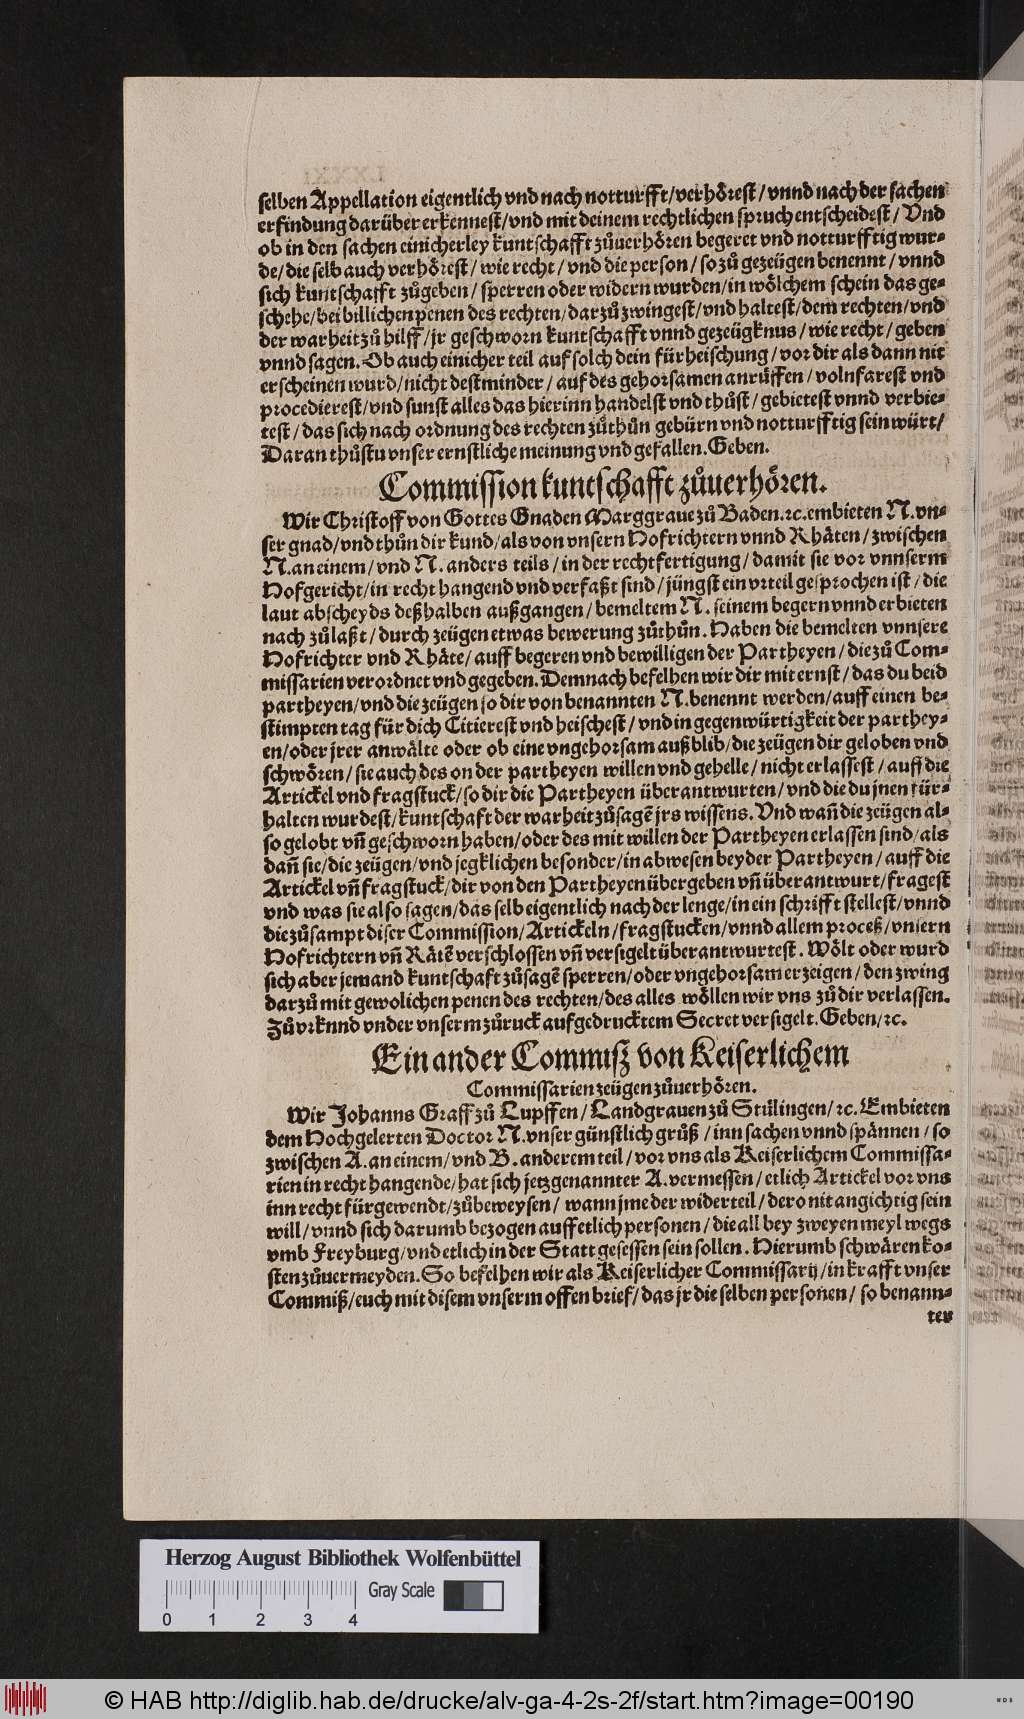 selben Appellation eigentlich vnd nach notturfft/verhörest/vnnd nach der sachen
erfindung darüber erkennest/vnd mit deinem rechtlichen spruch entscheidest/ Vnd
ob in den sachen einicherley kuntschafft zůuerhören begeret vnd notturfftig wur-
de/die selb auch verhörest/ wie recht/ vnd die person/ so zů gezeügen benennt/ vnnd
sich kuntschafft zůgeben/ sperren oder widern wurden/in wölchem schein das ge-
schehe/bei billichen penen des rechten/darzů zwingest/vnd haltest/dem rechten/vnd
der warheit zů hilff/jr geschworn kuntschafft vnnd gezeügknus/ wie recht/ geben
vnnd sagen. Ob auch einicher teil auf solch dein fürheischung/ vor dir als dann nit
erscheinen wurd/nicht destminder/ auf des gehorsamen anrüffen/ volnfarest vnd
procedierest/vnd sunst alles das hierinn handelst vnd thůst/ gebietest vnnd verbie-
test/ das sich nach ordnung des rechten zůthůn gebürn vnd notturfftig sein würt/
Daran thůstu vnser ernstliche meinung vnd gefallen. Geben.
Commission kuntschafft zůuerhören.
Wir Christoff von Gottes Gnaden Marggraue zů Baden.ꝛc.embieten N.vn-
ser gnad/vnd thůn dir kund/als von vnsern Hofrichtern vnnd Rhäten/ zwischen
N.an einem/ vnd N. anders teils/ in der rechtfertigung/ damit sie vor vnnserm
Hofgericht/in recht hangend vnd verfaßt sind/ jüngst ein vrteil gesprochen ist/ die
laut abscheyds deßhalben außgangen/ bemeltem N. seinem begern vnnd erbieten
nach zůlaßt/ durch zeügen etwas bewerung zůthůn. Haben die bemelten vnnsere
Hofrichter vnd Rhäte/ auff begeren vnd bewilligen der Partheyen/ die zů Com-
missarien verordnet vnd gegeben. Demnach befelhen wir dir mit ernst/ das du beid
partheyen/vnd die zeügen so dir von benannten N.benennt werden/auff einen be-
stimpten tag für dich Citierest vnd heischest/ vnd in gegenwürtigkeit der parthey-
en/oder jrer anwälte oder ob eine vngehorsam außblib/die zeügen dir geloben vnd
schwören/ sie auch des on der partheyen willen vnd gehelle/ nicht erlassest/ auff die
Artickel vnd fragstuck/so dir die Partheyen überantwurten/ vnd die du jnen für-
halten wurdest/kuntschaft der warheit zůsagẽ jrs wissens. Vnd wañ die zeügen al-
so gelobt vñ geschworn haben/oder des mit willen der Partheyen erlassen sind/als
dañ sie/die zeügen/vnd jegklichen besonder/in abwesen beyder Partheyen/ auff die
Artickel vñ fragstuck/dir von den Partheyen übergeben vñ überantwurt/fragest
vnd was sie also sagen/das selb eigentlich nach der lenge/in ein schrifft stellest/vnnd
die zůsampt diser Commission/Artickeln/fragstucken/vnnd allem proceß/vnsern
Hofrichtern vñ Rätẽ verschlossen vñ versigelt überantwurtest. Wölt oder wurd
sich aber jemand kuntschaft zůsagẽ sperren/oder vngehorsam erzeigen/ den zwing
darzů mit gewolichen penen des rechten/des alles wöllen wir vns zů dir verlassen.
Zů vrknnd vnder vnserm zůruck aufgedrucktem Secret versigelt. Geben/ꝛc.
Ein ander Commiß von Keiserlichem
Commissarien zeügen zůuerhören.
Wir Johanns Graff zů Lupffen/ Landgrauen zů Stülingen/ꝛc. Embieten
dem Hochgelerten Doctor N.vnser günstlich grůß/ inn sachen vnnd spännen/ so
zwischen A.an einem/vnd B.anderem teil/ vor vns als Keiserlichem Commissa-
rien in recht hangende/hat sich jetzgenannter A.vermessen/ etlich Artickel vor vns
inn recht fürgewendt/zůbeweysen/ wann jme der widerteil/ dero nit angichtig sein
will/ vnnd sich darumb bezogen auff etlich personen/ die all bey zweyen meyl wegs
vmb Freyburg/vnd etlich in der Statt gesessen sein sollen. Hierumb schwären ko-
sten zůuermeyden. So befelhen wir als Keiserlicher Commissarij/in krafft vnser
Commiß/euch mit disem vnserm offen brief/ das jr die selben personen/ so benann-
ten
Herzog August Bibliothek Wolfenbüttel
Gray Scale
0 1 2 3 4
© HAB http://diglib.hab.de/drucke/alv-ga-4-2s-2f/start.htm?image=00190